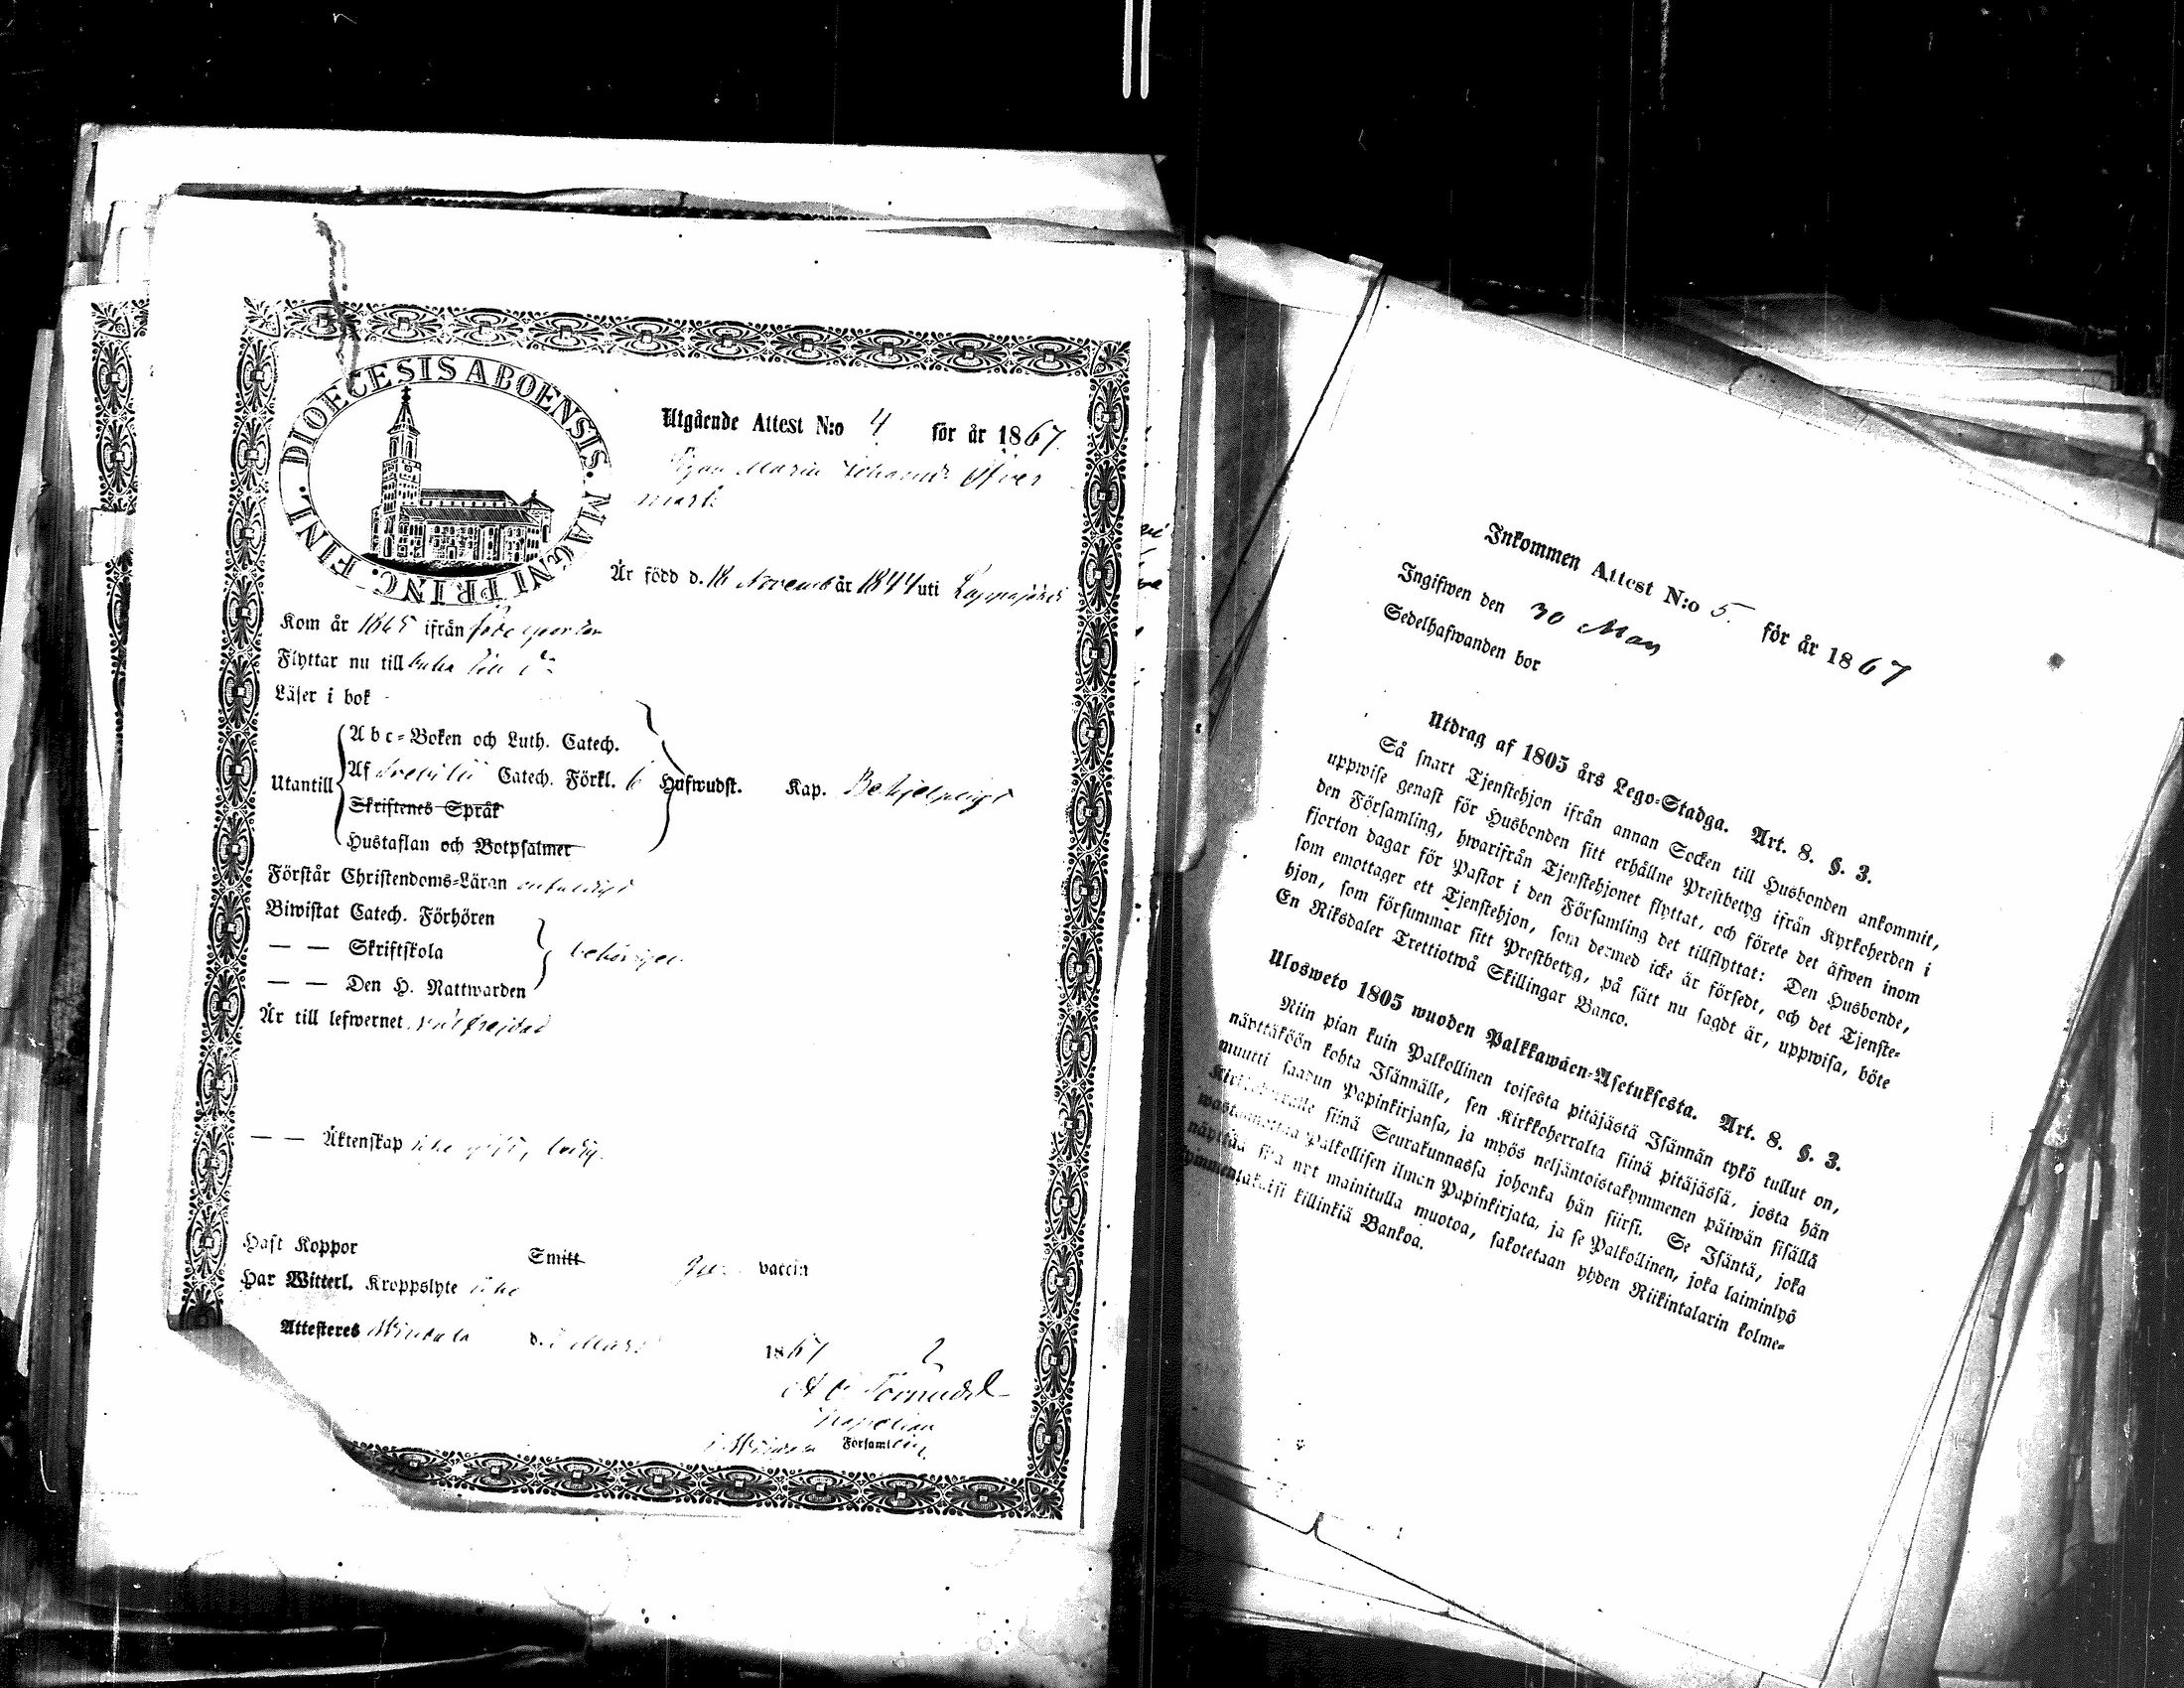 DIOECESIS ABOENSIS. MAGNI PRINC. FINL.
Utgående Attest N:o 4 för år 1867.
Pigan Maria Johanna Öfver
mark
Är född d. 18 November år 1844 uti Lappajärvi
Kom år 1865 ifrån
Flyttar nu till
Läser i bok
Utantill
Abc-Boken och Luth. Catech.
Af Svebilii Catech. Förkl. 6 Hufwudst. Kap. Behjelpligt
Skriftenes Språk
Hustaflan och Botpsalmer
Förstår Christendoms-Läran enfaldigt
Biwistat Catech. Förhören
— — Skriftskola behörigen
— — Den H. Nattwarden
Är till lefwernet välfrejdad
— — Äktenskap icke gift, ledig.
Haft Koppor Smitt vaccin
Har Witterl. Kroppslyte icke
Attesteres Windala d. Mars 1867
Kapellan
i Windala Församling
Inkommen Attest N:o 5. för år 1867
Ingifwen den 30 Mars
Sedelhafwanden bor
Utdrag af 1805 års Lego-Stadga. Art. 8. §. 3.
Så snart Tjenstehjon ifrån annan Socken till Husbonden ankommit,
uppwise genast för Husbonden sitt erhållne Prestbetyg ifrån Kyrkoherden i
den Församling, hwarifrån Tjenstehjonet flyttat, och förete det äfwen inom
fjorton dagar för Pastor i den Församling det tillflyttat: Den Husbonde,
som emottager ett Tjenstehjon, som dermed icke är försedt, och det Tjenste-
hjon, som försummar sitt Prestbetyg, på sätt nu sagdt är, uppwisa, böte
En Riksdaler Trettiotwå Skillingar Banco.
Ulosweto 1805 wuoden Palkkawäen-Asetuksesta. Art. 8. §. 3.
Niin pian kuin Palkollinen toisesta pitäjästä Isännän tykö tullut on,
näyttäköön kohta Isännälle, sen Kirkkoherralta siinä pitäjässä, josta hän
muutti saadun Papinkirjansa, ja myös neljäntoistakymmenen päiwän sisällä
Kirkkoherralle siinä Seurakunnassa johonka hän siirsi. Se Isäntä, joka
wastaanottaa Palkollisen ilman Papinkirjata, ja se Palkollinen, joka laiminlyö
näyttää sitä nyt mainitulla muotoa, sakotetaan yhden Riikintalarin kolme-
kymmentäkaksi killinkiä Bankoa.